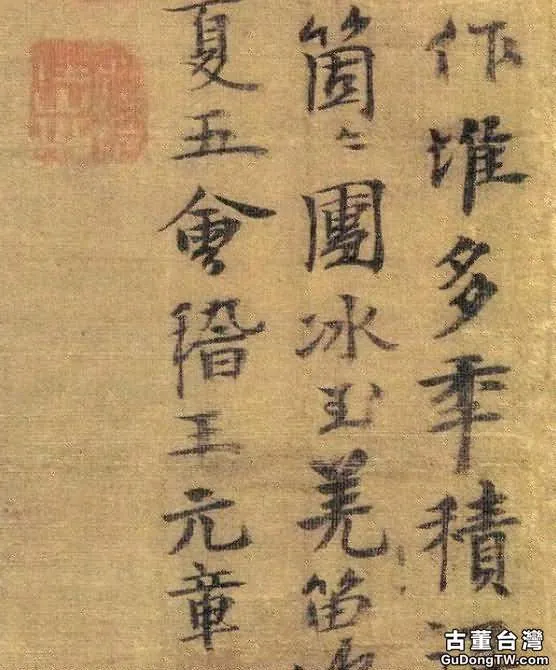 作堆多年積
箇〻團冰玉羌笛
夏五會稽王元章
古董台灣
GuDongTW.com